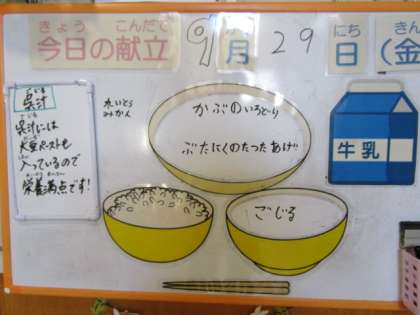 きょう こんだて
今日の献立
9月29日(金
にち
きん
ごじる
呉汁
呉汁には
大豆ペーストも
入っているので
栄養満点です!
れいとう
みかん
かぶのいろどり
ぶたにくのたつたあげ
牛乳
ごじる